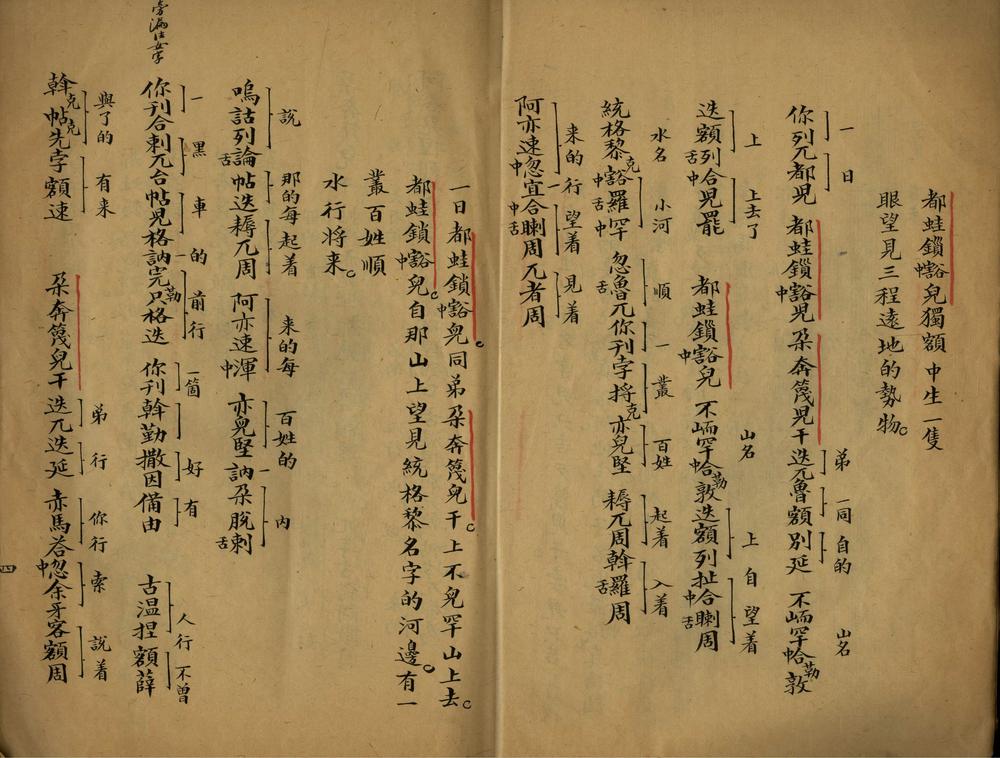 都蛙鎖中豁兒獨額中生一隻
眼望見三程遠地的勢物
一日 弟 一同自的 山名
你列兀都兒 都蛙鎖中豁兒 朶奔篾兒干 迭兀魯額 別延 不峏罕哈勒敦
上 上去了 山名 上 自 望着
迭額舌列中合兒罷 都蛙鎖中豁兒 不峏罕哈勒敦迭額列扯中合舌瞓周
水名 小河 順 一 叢 百姓 起着 入着
統格黎克中豁舌羅中罕 忽舌魯兀你刊孛捋克亦兒堅 耨兀周斡舌羅周
来的 行 望着 見着
阿亦速中忽宜中合舌瞓周兀者周
一日都蛙鎖中豁兒同弟朶奔篾兒干上不兒罕山上去
都蛙鎖中豁兒自那山上望見統格黎名字的河邊有一
叢百姓順
水行将来
說 那的每起着 来的每 百姓的 内
嗚詁列舌論帖迭耨兀周 阿亦速中渾 亦兒堅訥朶脫舌剌
一 黑 車 的 前行 一箇 好 有 人行 不曾
你刊合剌兀台帖兒格訥完勒只格迭 你刊斡勤撒因備由 古温捏額薛
旁漏注女字
與了的 有来 弟 行 你行 索 說着
斡克帖克先孛額速 朶奔篾兒干迭兀迭延 赤馬荅中忽余牙客額周
四